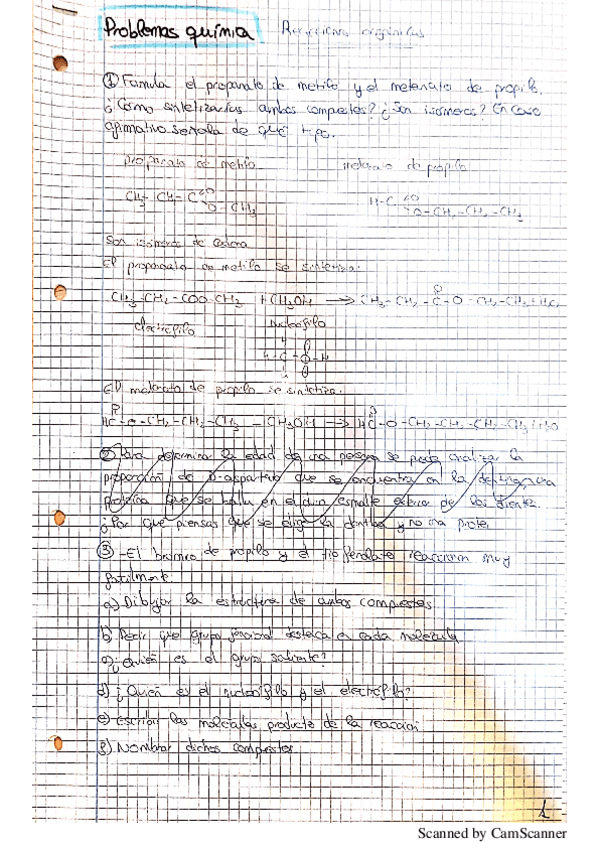 Problemas química Reacciones orgánicas
① Formula el propanato de metilo y el metanato de propilo.
¿Cómo sintetizarías ambos compuestos? ¿Son isómeros? En caso
afirmativo señala de qué tipo.
propanato de metilo metanato de propilo
CH3-CH2-C O-CH3
H-C O-CH2-CH2-CH3
Son isómeros de cadena
El propanato de metilo se sintetiza:
CH3-CH2-COO-CH3 + CH3OH → CH3-CH2-C-O-CH2-CH3+H2O
electrófilo nucleófilo
H-C-O-H
El metanato de propilo se sintetiza.
HC-O-CH2-CH2-CH3 - CH3OH → HC-O-CH2-CH2-CH2-CH3+H2O
② Para determinar la edad de una persona se puede analizar la
proporción de D-aspartato que se encuentra en la dentina, una
proteína que se halla en el esmalte de los dientes.
¿Por qué piensas que se elige la dentina y no una
③ -El bromuro de propilo y el tiofenolato reaccionan muy
fácilmente:
a) Dibujar la estructura de ambos compuestos
b) Decir que grupo funcional destaca en cada molécula
c) ¿Quién es el grupo saliente?
d) ¿Quién es el nucleófilo y el electrófilo?
e) Escribir las moléculas producto de la reacción
f) Nombrar dichos compuestos
1
Scanned by CamScanner